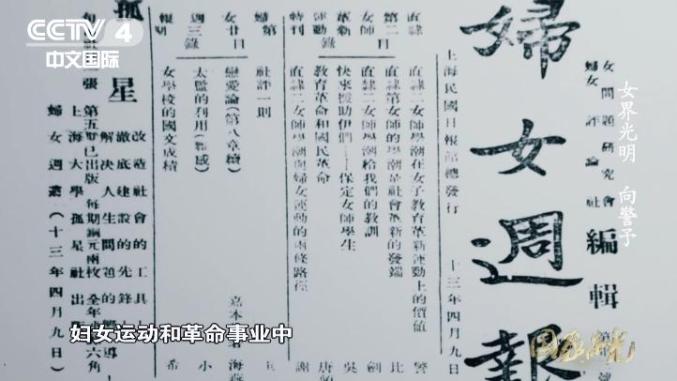 CCTV 4
中文国际
婦女週報
女問題研究會
婦女評論社
編輯
女界光明 向警予
上海民國日報館總發行 十三年四月九日
直隸第二女師革新運動特刊
直隸二女師學潮在女子教育革新運動上的價值
直隸第二女師的學潮是社會革新的發端
直隸二女師學潮給我們的教訓
快來援助伊們——保定女師學生
教育革命和國民革命
直隸二女師學潮與婦女運動的兩條路徑
社評一則
戀愛論(第八章續)
太監的利用(雜感)
女學校的國文成績
孤星
改造社會的工具
徹底建設的先鋒
解決人生問題的
第五期已出版 每期銅元兩枚 全年 六角
上海大學孤星社出版
婦女週報(十三年四月九日)
妇女运动和革命事业中